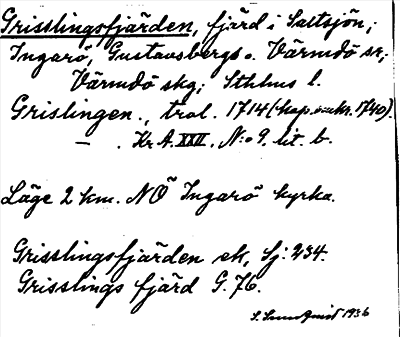 Grisslingsfjärden, fjärd i Saltsjön;
Ingarö, Gustavsbergs o. Värmdö sn;
Värmdö skg; Sthlms l.
Grislingen., trol. 1714 (kop. omkr. 1740).
— . Kr. A. XXII. N:o 9. lit. b.
Läge 2 km. NÖ Ingarö kyrka.
Grisslingsfjärden ek, Sj: 234.
Grisslings fjärd G. 76.
1936